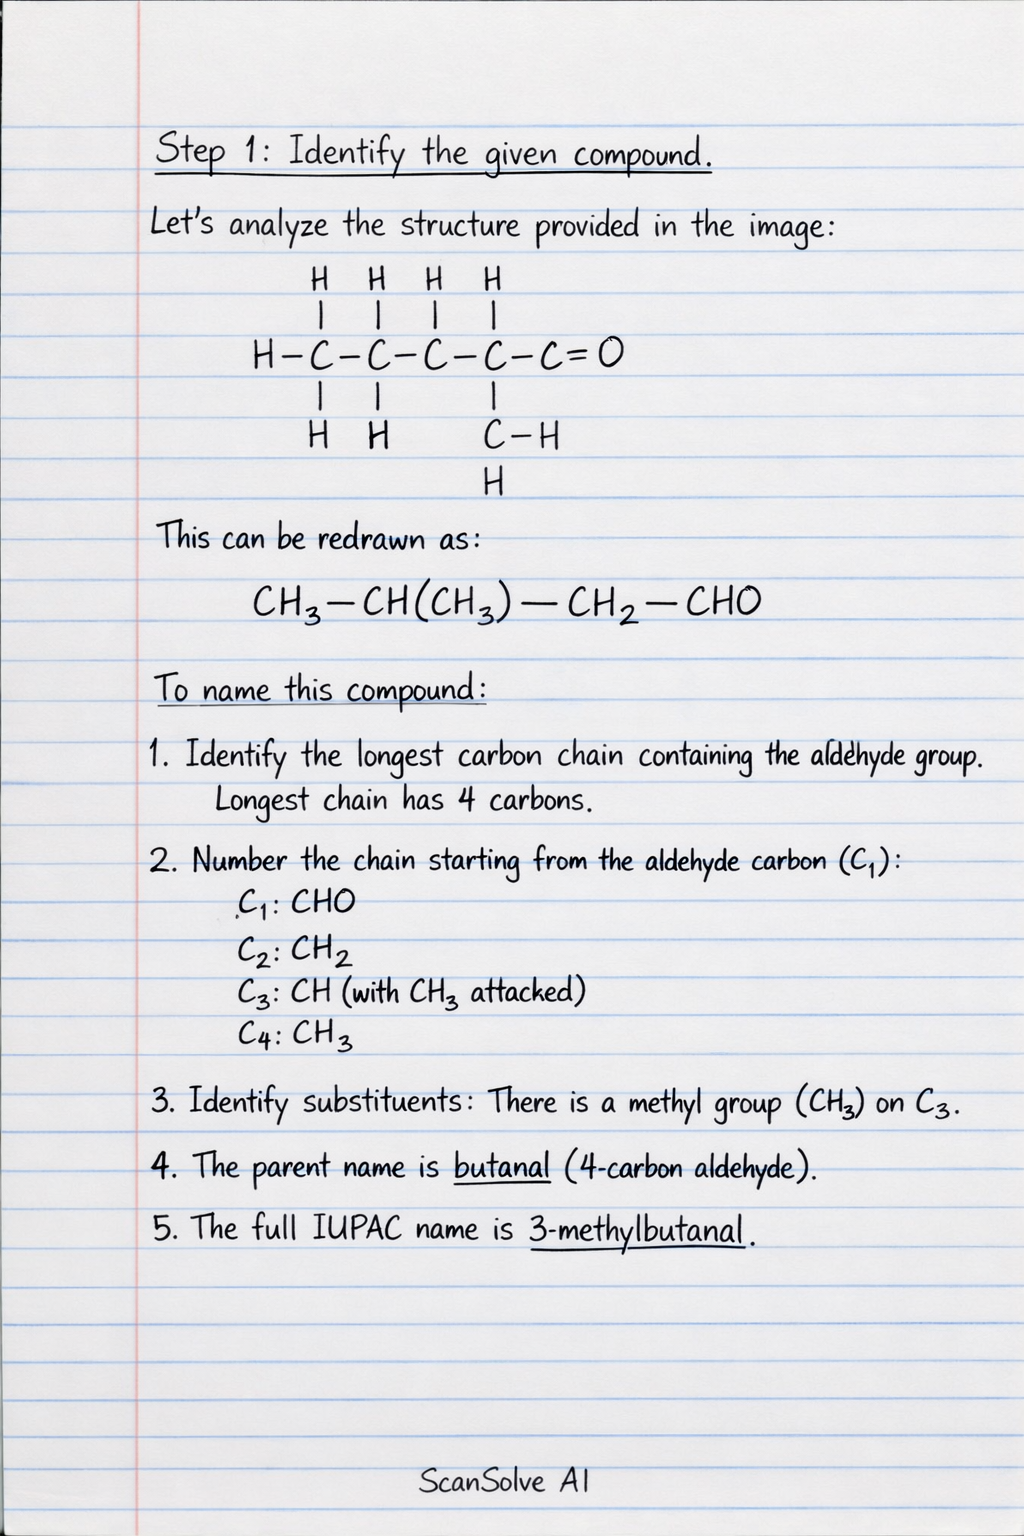 Step 1: Identify the given compound.
Let's analyze the structure provided in the image:
H H H H
| | | |
H–C–C–C–C–C=O
| | |
H H C–H
H
This can be redrawn as:
CH₃–CH(CH₃)–CH₂–CHO
To name this compound:
1. Identify the longest carbon chain containing the aldehyde group.
Longest chain has 4 carbons.
2. Number the chain starting from the aldehyde carbon (C₁):
C₁: CHO
C₂: CH₂
C₃: CH (with CH₃ attacked)
C₄: CH₃
3. Identify substituents: There is a methyl group (CH₃) on C₃.
4. The parent name is butanal (4-carbon aldehyde).
5. The full IUPAC name is 3-methylbutanal.
ScanSolve AI